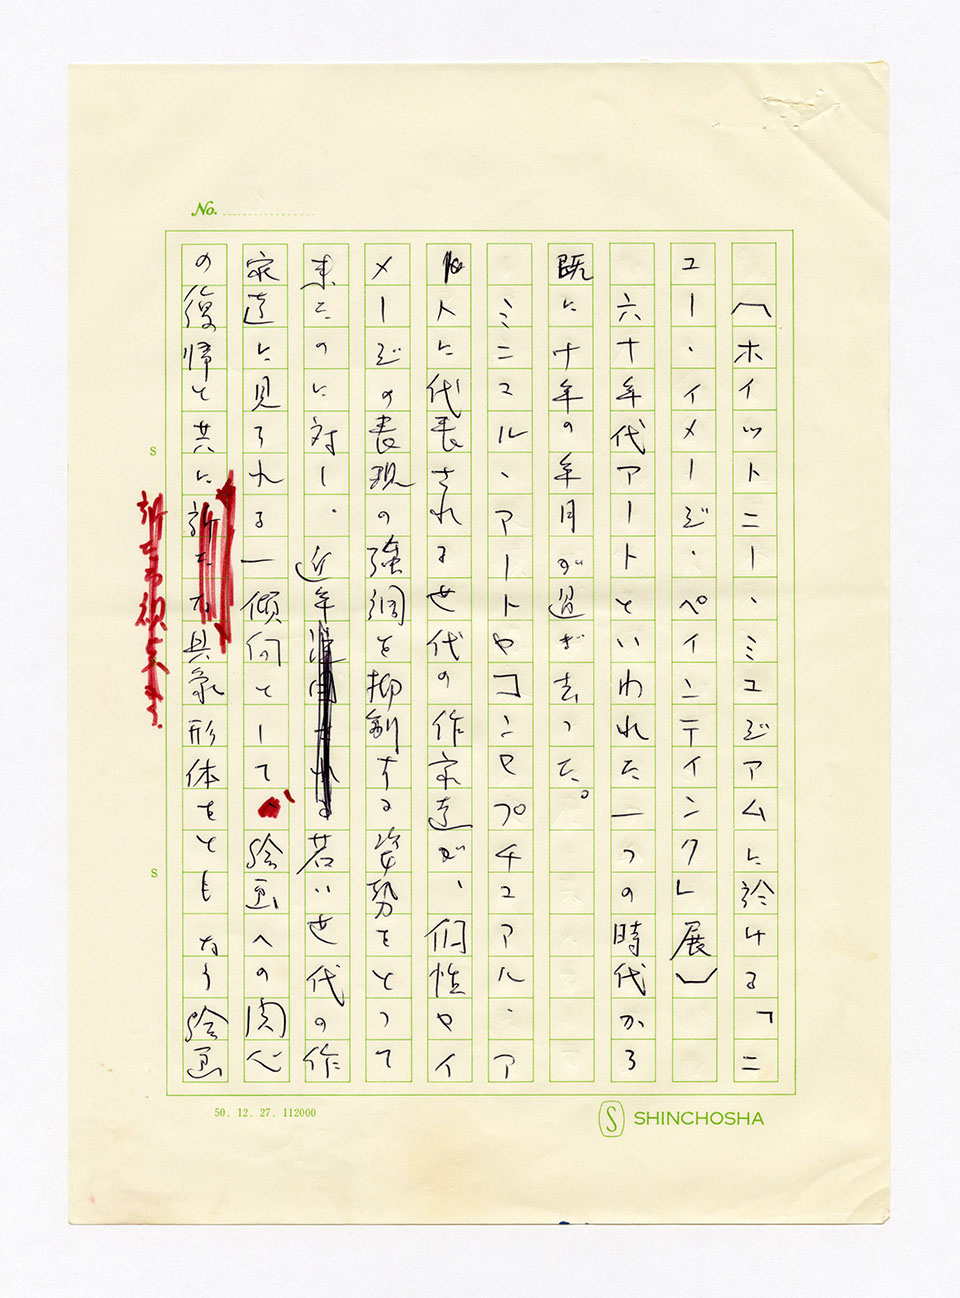 No.
〔ホイットニー・ミュジアムに於ける「ニ
ュー・イメージ・ペインティング」展〕
六十年代アートといわれた一つの時代から
既に十年の年月が過ぎ去った。
ミニマル・アートやコンセプチュアル・ア
ートに代表される世代の作家達が、個性やイ
メージの表現の強調を抑制する姿勢をとって
来たのに対し、近年若い世代の作
家達に見られる一傾向として、絵画への関心
の復帰と共に新たな具象形体をともなう絵画
S
S
50. 12. 27. 112000
S SHINCHOSHA